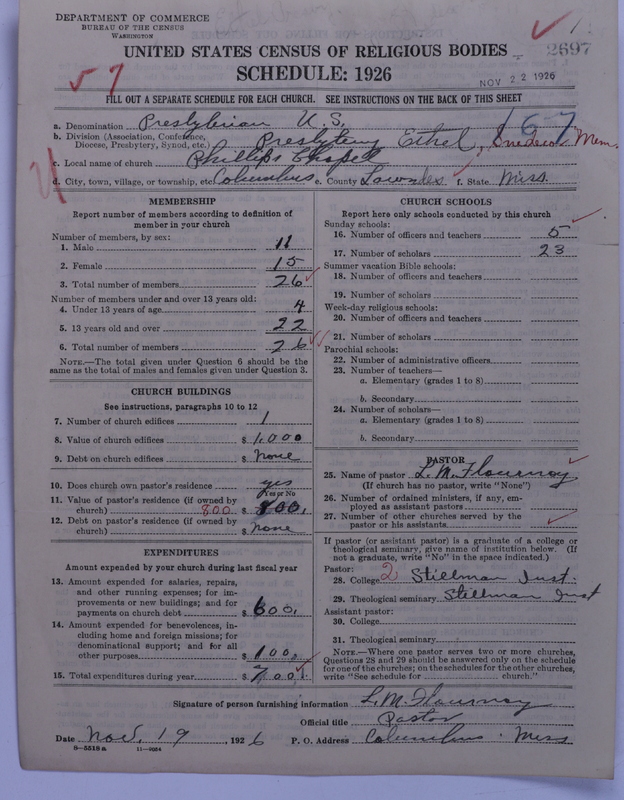 DEPARTMENT OF COMMERCE
BUREAU OF THE CENSUS
WASHINGTON
2697
UNITED STATES CENSUS OF RELIGIOUS BODIES
SCHEDULE: 1926
NOV 22 1926
7
FILL OUT A SEPARATE SCHEDULE FOR EACH CHURCH. SEE INSTRUCTIONS ON THE BACK OF THIS SHEET
16-7
a. Denomination Presbyterian U. S.
b. Division (Association, Conference, Diocese, Presbytery, Synod, etc.) Presbytery Ethel, Snedecor Mem.
c. Local name of church Phillips Chapel
d. City, town, village, or township, etc. Columbus e. County Lowndes f. State Miss.
MEMBERSHIP
Report number of members according to definition of
member in your church
Number of members, by sex:
1. Male 11
2. Female 15
3. Total number of members 26
Number of members under and over 13 years old:
4. Under 13 years of age 4
5. 13 years old and over 22
6. Total number of members 26
NOTE.—The total given under Question 6 should be the
same as the total of males and females given under Question 3.
CHURCH BUILDINGS
See instructions, paragraphs 10 to 12
7. Number of church edifices 1
8. Value of church edifices $ 1,000
9. Debt on church edifices $ none
10. Does church own pastor's residence yes
Yes or No
11. Value of pastor's residence (if owned by
church) 800 $ 800.
12. Debt on pastor's residence (if owned by
church) $ none
EXPENDITURES
Amount expended by your church during last fiscal year
13. Amount expended for salaries, repairs,
and other running expenses; for im-
provements or new buildings; and for
payments on church debt $ 600.
14. Amount expended for benevolences, in-
cluding home and foreign missions; for
denominational support; and for all
other purposes $ 100.
15. Total expenditures during year $ 700.
CHURCH SCHOOLS
Report here only schools conducted by this church
Sunday schools:
16. Number of officers and teachers 5
17. Number of scholars 23
Summer vacation Bible schools:
18. Number of officers and teachers
19. Number of scholars
Week-day religious schools:
20. Number of officers and teachers
21. Number of scholars
Parochial schools:
22. Number of administrative officers
23. Number of teachers—
a. Elementary (grades 1 to 8)
b. Secondary
24. Number of scholars—
a. Elementary (grades 1 to 8)
b. Secondary
PASTOR
25. Name of pastor L. M. Flournoy
(If church has no pastor, write "None")
26. Number of ordained ministers, if any, em-
ployed as assistant pastors
27. Number of other churches served by the
pastor or his assistants
If pastor (or assistant pastor) is a graduate of a college or
theological seminary, give name of institution below. (If
not a graduate, write "No" in the space indicated.)
Pastor:
28. College 2 Stillman Inst.
29. Theological seminary Stillman Inst
Assistant pastor:
30. College
31. Theological seminary
NOTE.—Where one pastor serves two or more churches,
Questions 28 and 29 should be answered only on the schedule
for one of the churches; on the schedules for the other churches,
write "See schedule for church."
Signature of person furnishing information L. M. Flournoy
Official title Pastor
Date Nov. 19, 1926 P. O. Address Columbus Miss
8—5518a 11—9034